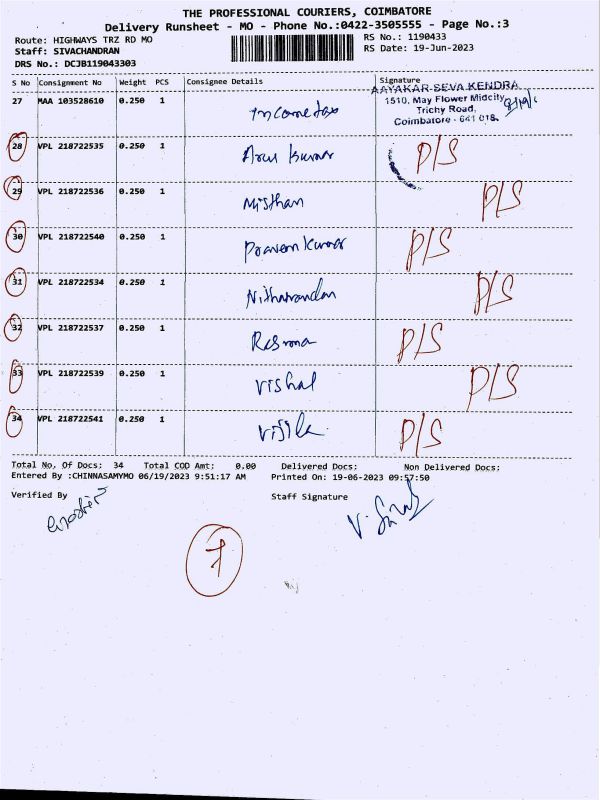 THE PROFESSIONAL COURIERS, COIMBATORE
Delivery Runsheet - MO - Phone No.:0422-3505555 - Page No.:3
Route: HIGHWAYS TRZ RD MO
RS No.: 1190433
Staff: SIVACHANDRAN
RS Date: 19-Jun-2023
DRS No.: DCJB119043303
S No Consignment No Weight PCS Consignee Details Signature
AAYAKAR SEVA KENDRA
1510, May Flower Midcity
Trichy Road,
Coimbatore - 641 018.
27 MAA 103528610 0.250 1 Incometax
28 VPL 218722535 0.250 1 Arun kumar P/S
29 VPL 218722536 0.250 1 Misthan P/S
30 VPL 218722540 0.250 1 Praveen Kumar P/S
31 VPL 218722534 0.250 1 P/S
32 VPL 218722537 0.250 1 P/S
33 VPL 218722539 0.250 1 Vishal P/S
34 VPL 218722541 0.250 1 P/S
Total No. Of Docs: 34 Total COD Amt: 0.00 Delivered Docs: Non Delivered Docs:
Entered By :CHINNASAMYMO 06/19/2023 9:51:17 AM Printed On: 19-06-2023 09:57:50
Verified By Staff Signature